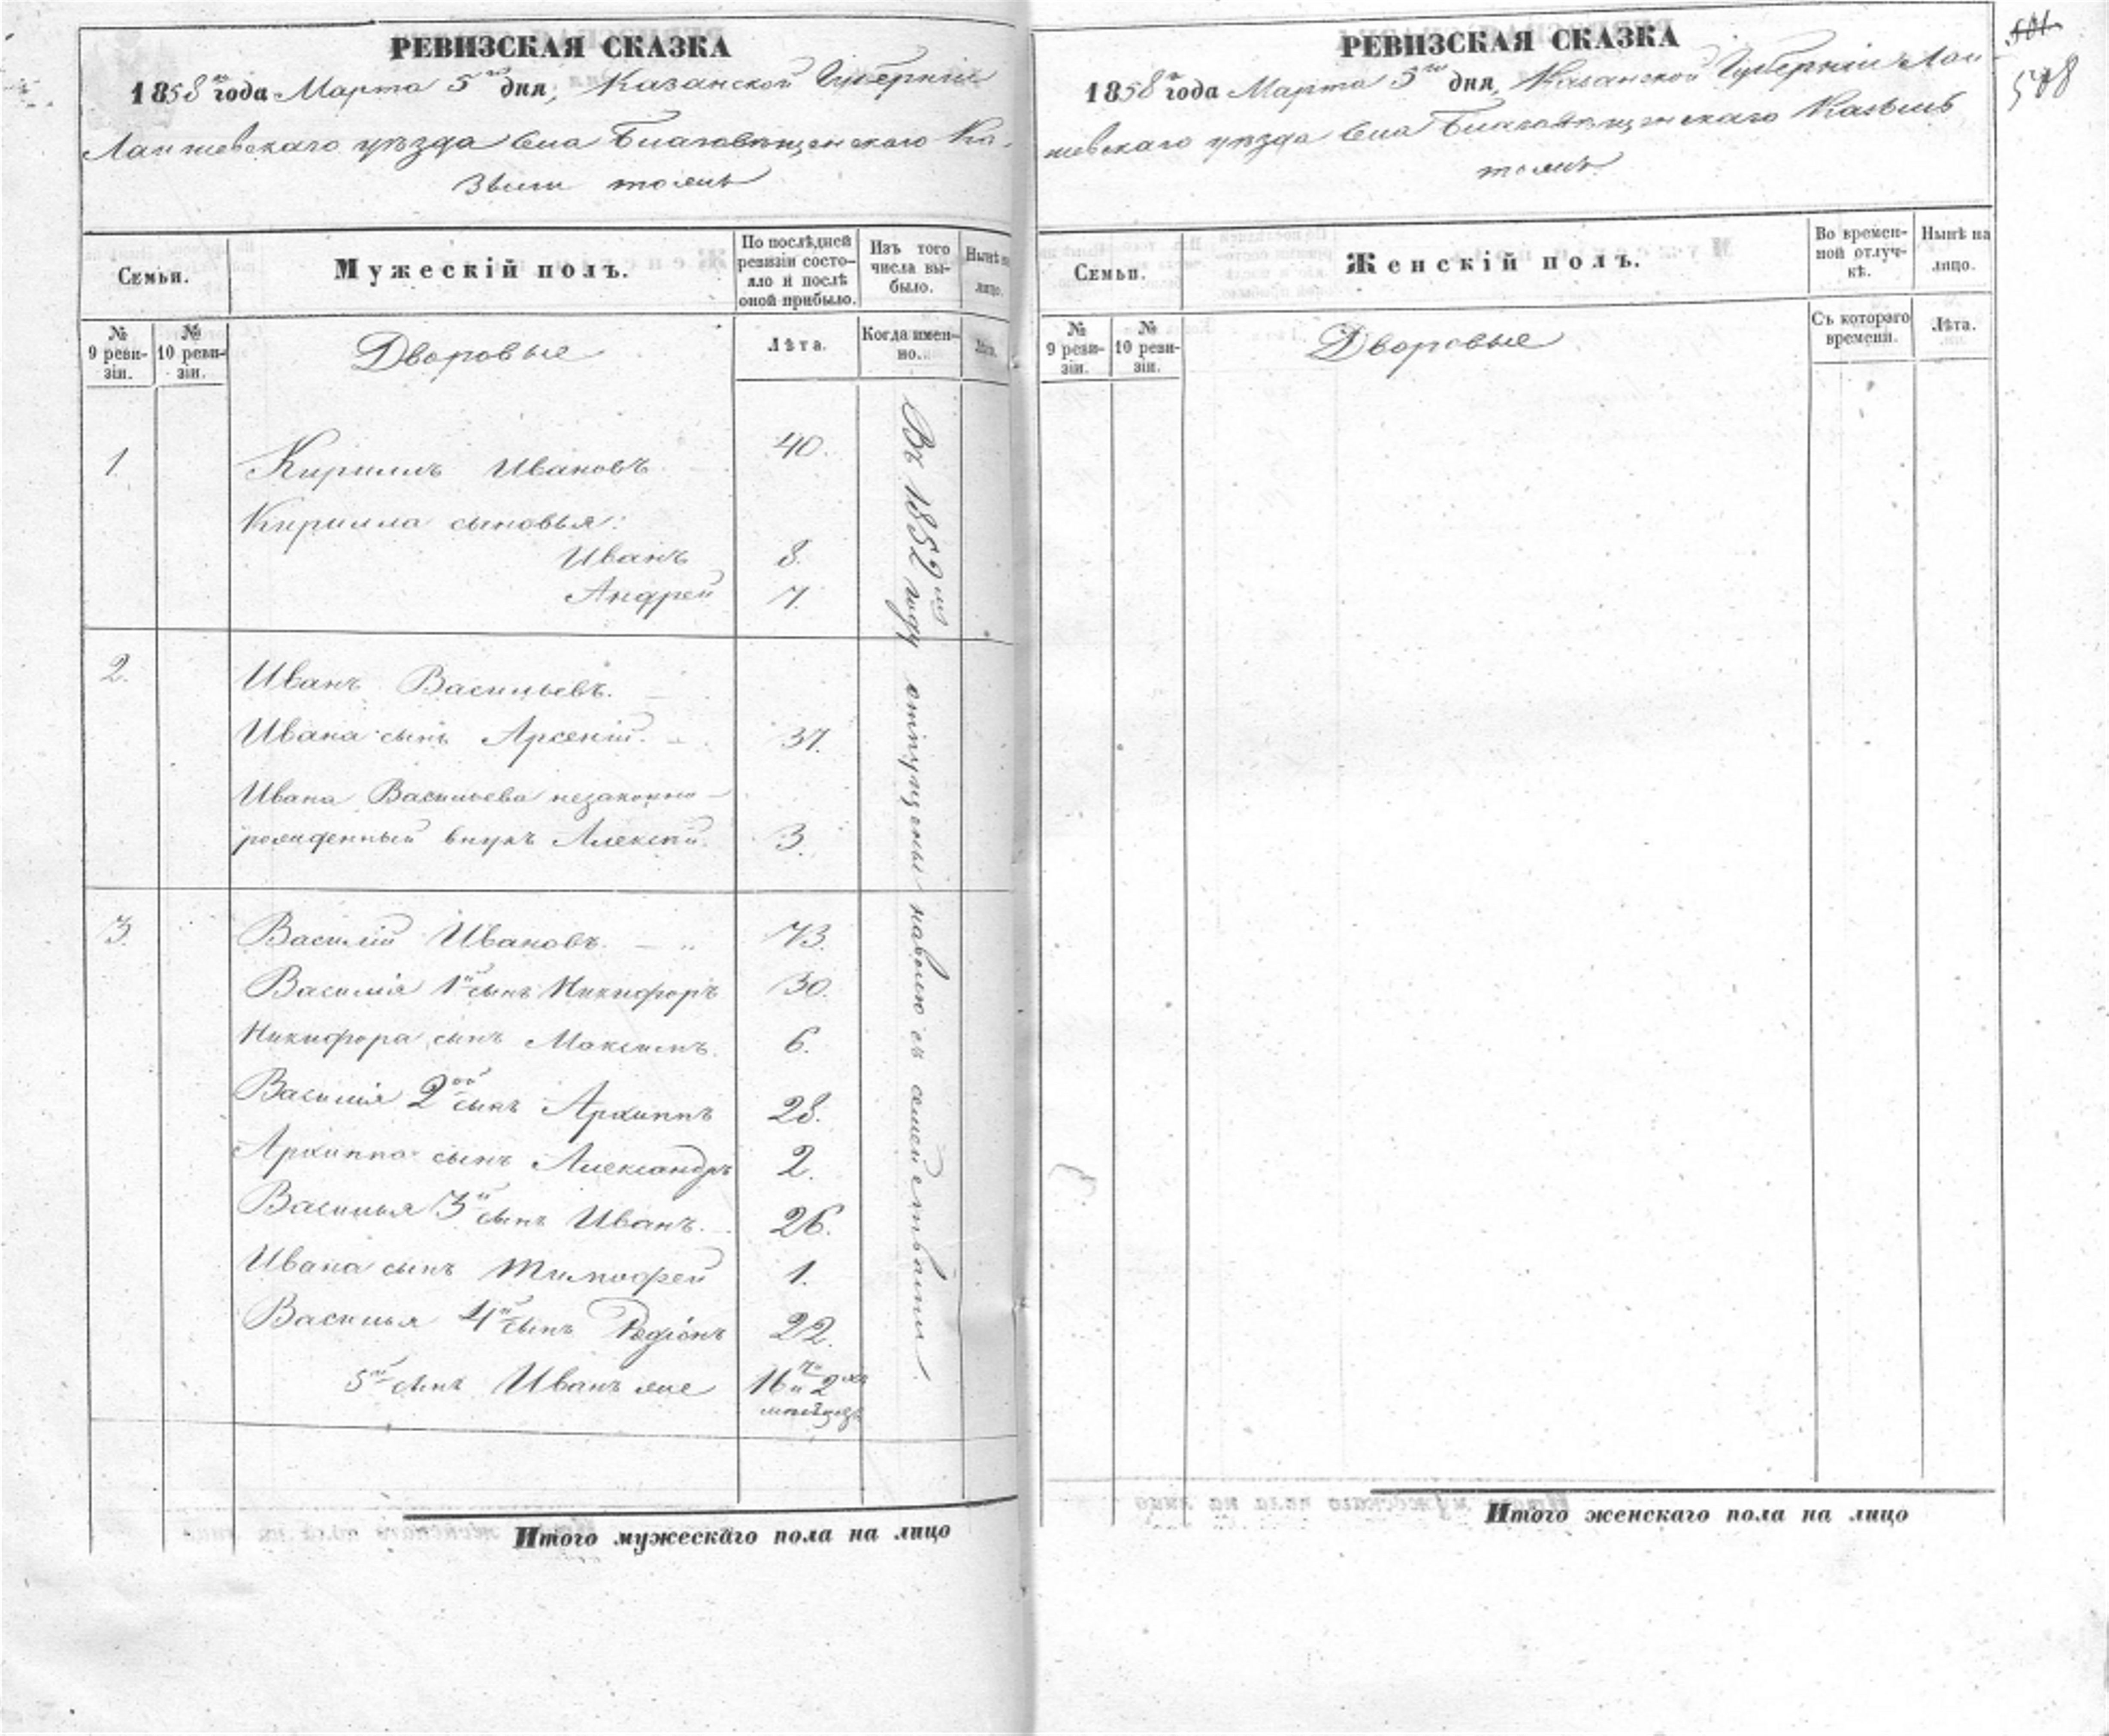 РЕВИЗСКАЯ СКАЗКА
1858го года Марта 5го дня, Казанской Губерніи
Лаишевскаго уѣзда Села Благовѣщенскаго Ка-
тожъ
Семьи.
Мужескій полъ.
По послѣдней ревизіи состо-
яло и послѣ оной прибыло.
Изъ того числа вы-
было.
Нынѣ на лицо.
№ 9 реви-
зіи.
№ 10 реви-
зіи.
Дворовые
Лѣта.
Когда имен-
но.
Лѣта.
1. Кириллъ Ивановъ 40.
Кирилла сыновья:
Иванъ 8.
Андрей 7.
2. Иванъ Васильевъ.
Ивана сынъ Арсеній. 37.
Ивана Васильева незаконно-
рожденный внукъ Алексѣй. 3.
3. Василій Ивановъ. — „ 73.
Василія 1й сынъ Никифоръ 30.
Никифора сынъ Максимъ. 6.
Василія 2ой сынъ Архиппъ 28.
Архиппа сынъ Александръ 2.
Василья 3й сынъ Иванъ. 26.
Ивана сынъ Тимофей 1.
Василья 4й сынъ Родіонъ 22.
5й сынъ Иванъ же 16ть и 2хъ
мѣсяцъ
Въ 1852мъ году отпущены наволю съ семействами.
Итого мужескаго пола на лицо
РЕВИЗСКАЯ СКАЗКА
1858го года Марта 5го дня, Казанской Губерніи Лаи-
шевскаго уѣзда Села Благовѣщенскаго
тожъ
501
508
Семьи.
Женскій полъ.
Во времен-
ной отлуч-
кѣ.
Нынѣ на лицо.
№ 9 реви-
зіи.
№ 10 реви-
зіи.
Дворовые
Съ котораго времени.
Лѣта.
Итого женскаго пола на лицо